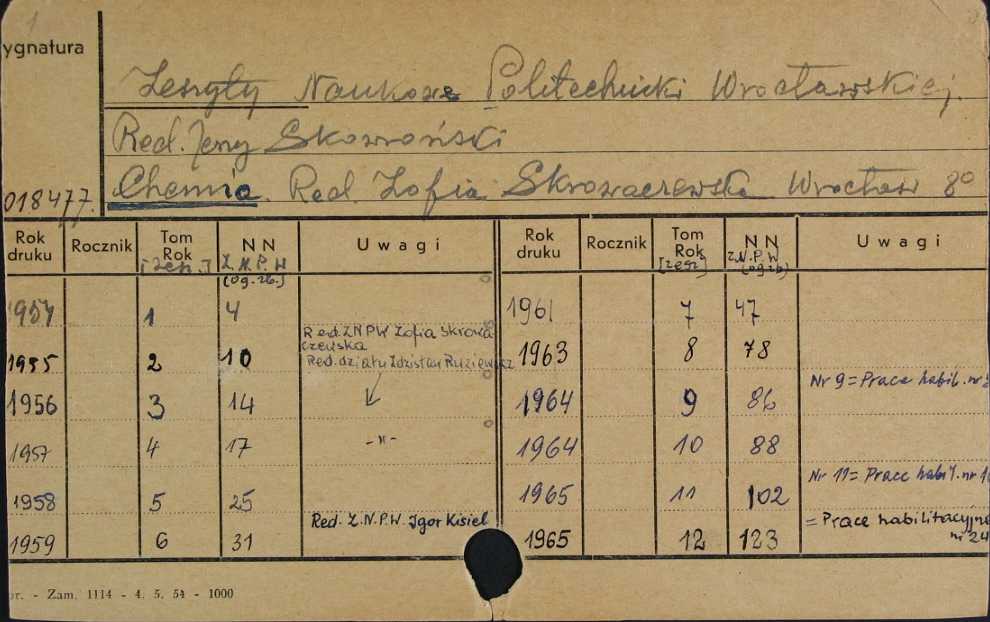 ygnatura
Zeszyty Naukowe Politechniki Wrocławskiej.
Red. Jerzy Skowroński
018477. Chemia. Red. Zofia Skrowaczewska Wrocław 8°
Rok druku Rocznik Tom Rok [zesz.] N N Z.N.P.W (og. zb.) Uwagi Rok druku Rocznik Tom Rok [zesz] N N Z.N.P.W (og. zb) Uwagi
1954 1 4 1961 7 47
Red. ZNPW Zofia Skrowa-
czewska
1955 2 10 Red. działu Zdzisław Ruziewicz 1963 8 78
Nr 9 = Prace habil. nr
1956 3 14 1964 9 86
1957 4 17 -"- 1964 10 88
Nr 11 = Prace habil. nr
1958 5 25 1965 11 102
Red. Z.N.P.W. Igor Kisiel = Prace habilitacyjne
nr 24
1959 6 31 1965 12 123
or. - Zam. 1114 - 4. 5. 54 - 1000